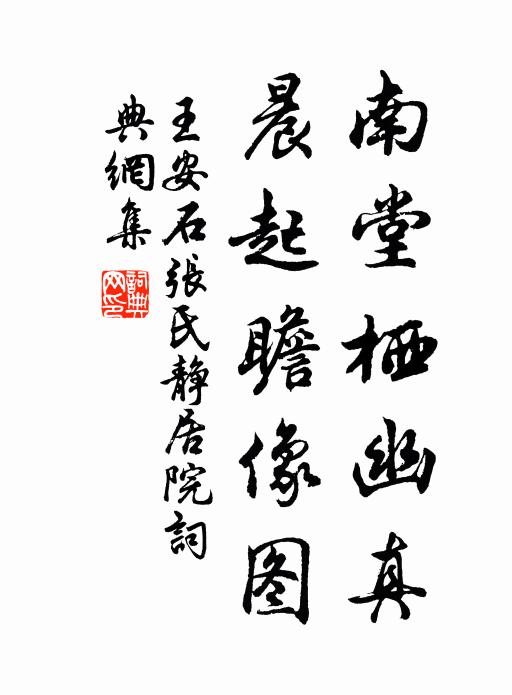 南堂栖幽真
晨起瞻像图
王安石張氏静居院詞
典網集
詞典
网印